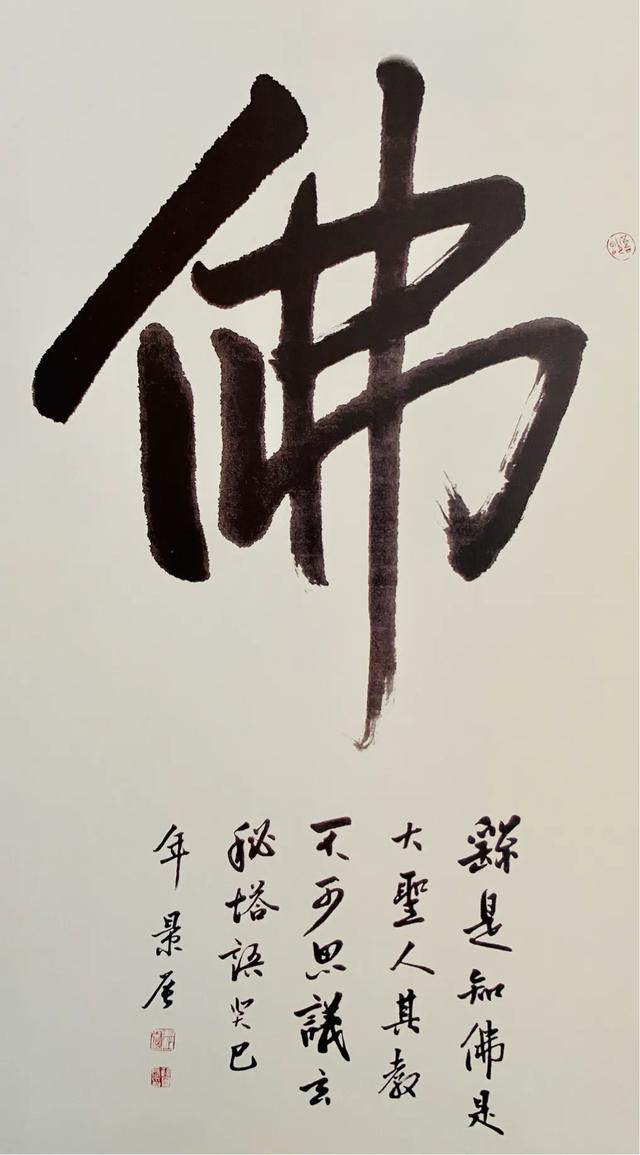 佛
繇是知佛是
大聖人其教
不可思議玄
秘塔語癸巳
年 景居